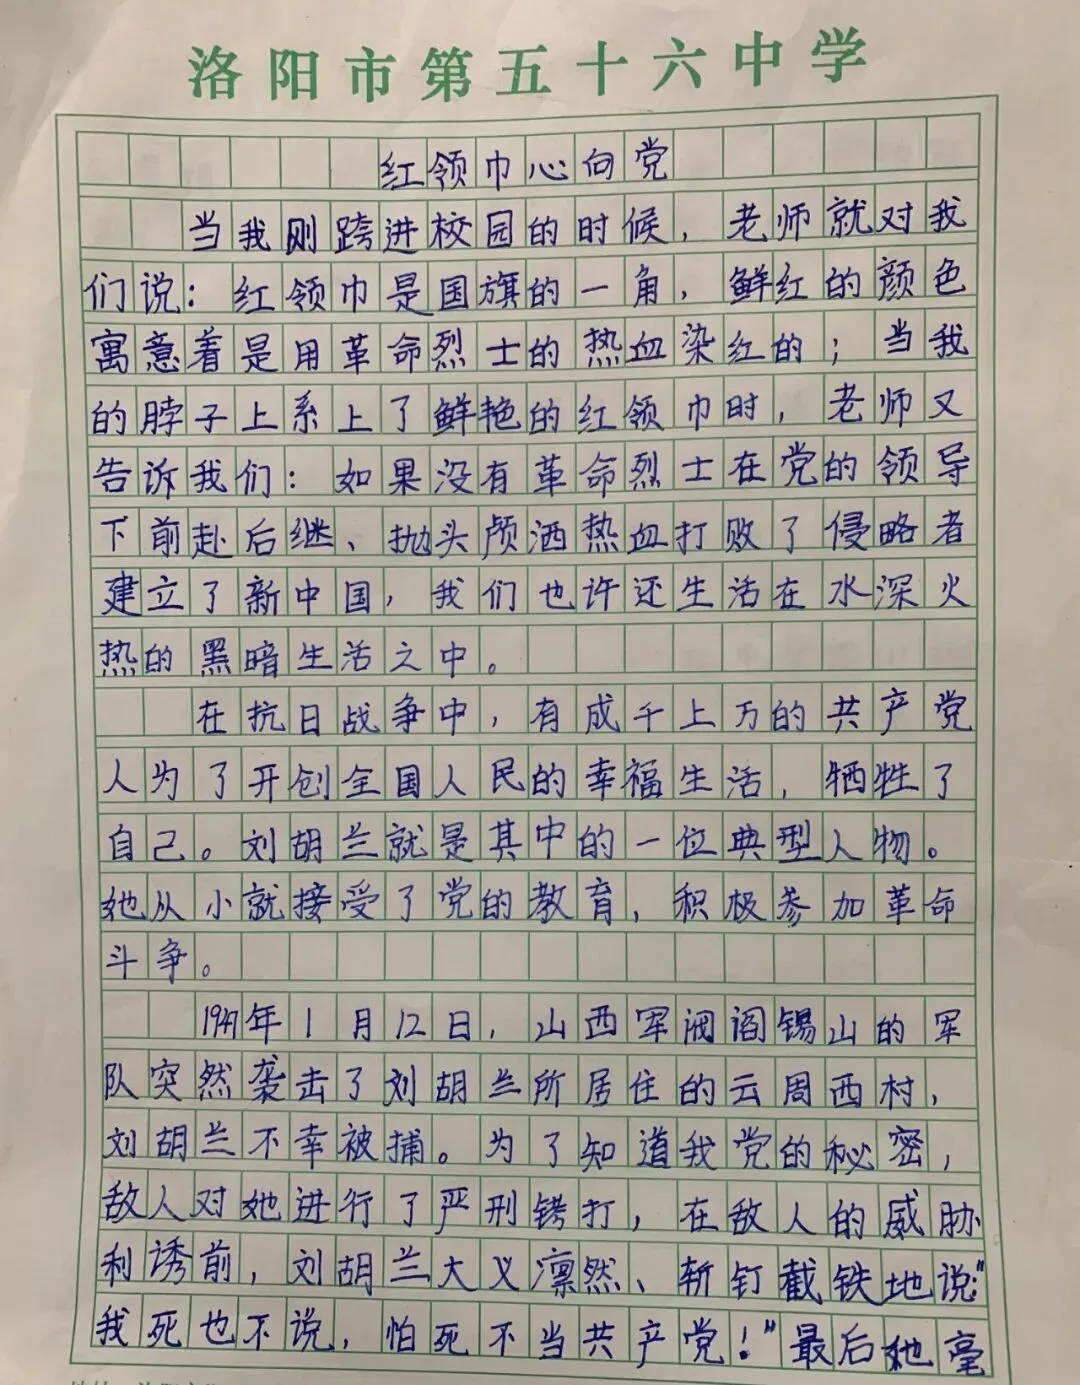 洛阳市第五十六中学
红领巾心向党
当我刚跨进校园的时候，老师就对我
们说：红领巾是国旗的一角，鲜红的颜色
寓意着是用革命烈士的热血染红的；当我
的脖子上系上了鲜艳的红领巾时，老师又
告诉我们：如果没有革命烈士在党的领导
下前赴后继、抛头颅洒热血打败了侵略者
建立了新中国，我们也许还生活在水深火
热的黑暗生活之中。
在抗日战争中，有成千上万的共产党
人为了开创全国人民的幸福生活，牺牲了
自己。刘胡兰就是其中的一位典型人物。
她从小就接受了党的教育，积极参加革命
斗争。
1947年1月12日，山西军阀阎锡山的军
队突然袭击了刘胡兰所居住的云周西村，
刘胡兰不幸被捕。为了知道我党的秘密，
敌人对她进行了严刑铐打，在敌人的威胁
利诱前，刘胡兰大义凛然、斩钉截铁地说：“
我死也不说，怕死不当共产党！”最后她毫